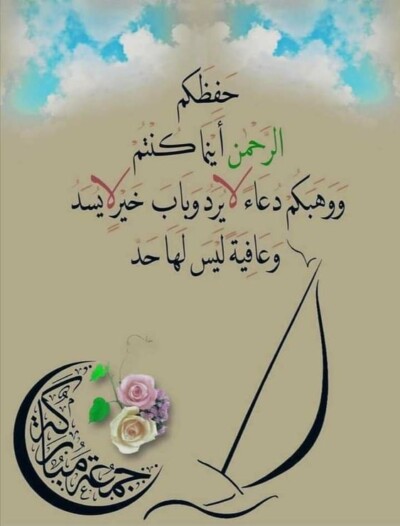 حَفِظَكم
الرَّحْمٰن أَينَما كُنْتُمْ
وَوَهَبَكُمْ دُعَاءً لا يرَدُ وَبَابَ خَيْرٍ لا يسَدُ
وَعَافِيَةً لَيْسَ لَهَا حَدْ
جمعة مباركة